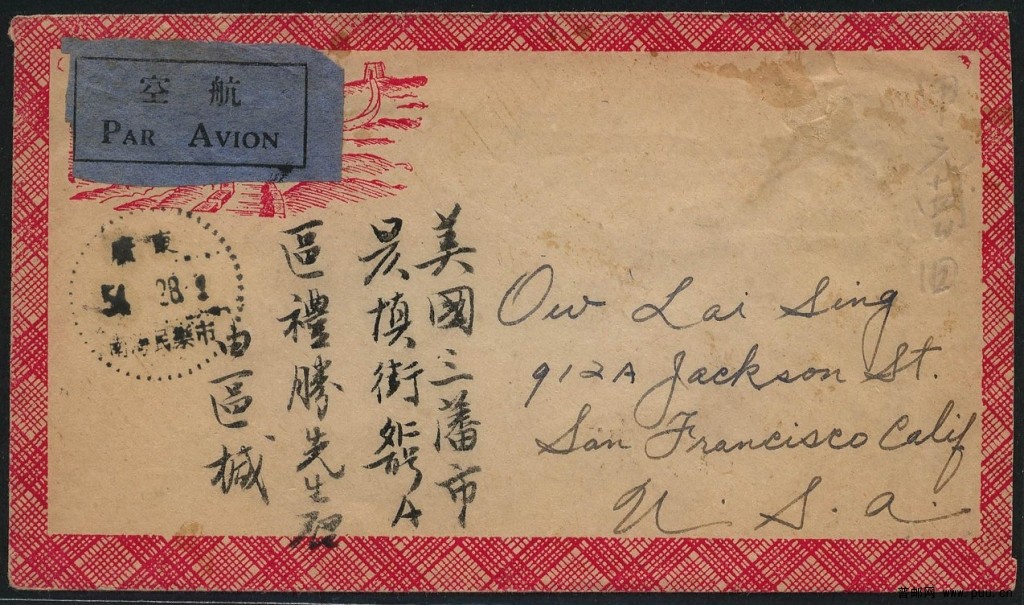 空 航
PAR AVION
廣東
54 28 2
南海民樂市
美國三藩市
區禮勝先生
由區械
Ow Lai Sing
912A Jackson St.
San Francisco Calif
U. S. A.
普邮网 www.puu.cn